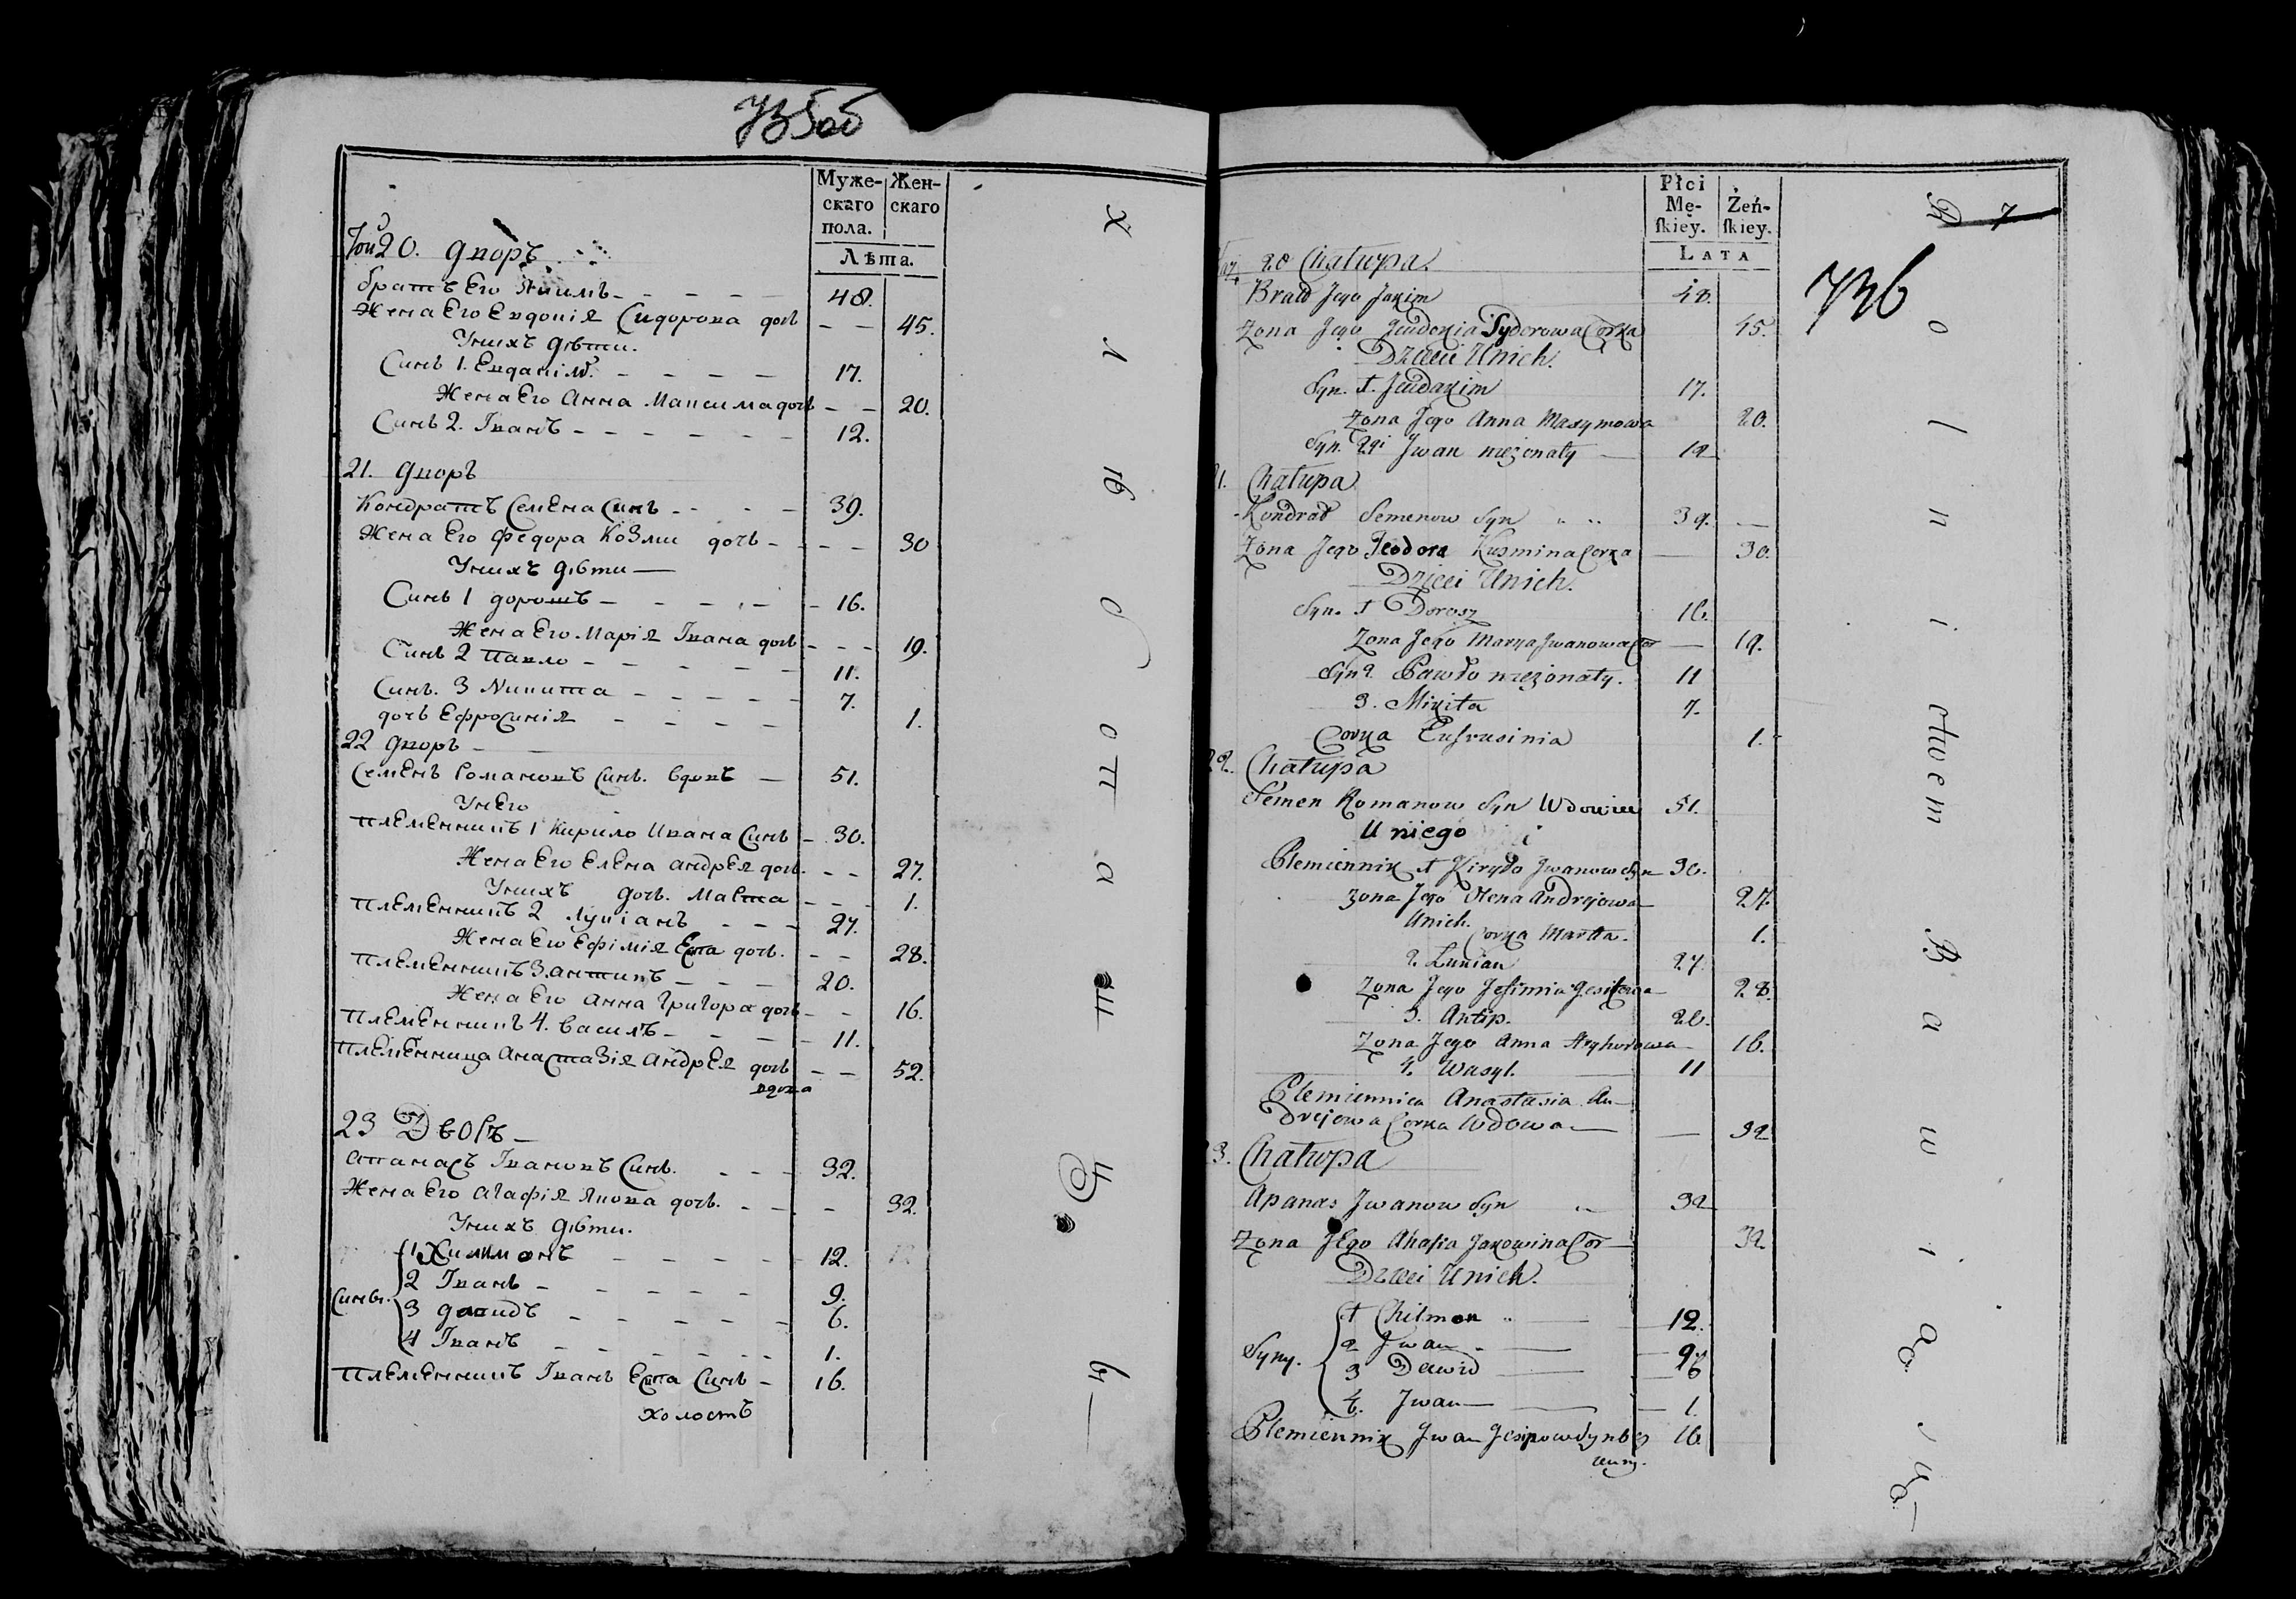 735об
Муже-
скаго
пола.
Жен-
скаго
Лѣта.
20. дворъ
братъ Его Якимъ 48.
Жена Его Евдокія Сидорова дочь 45.
У нихъ дѣти.
Синъ 1. Евдакімъ 17.
Жена Его Анна Максима дочь 20.
Синъ 2. Іванъ 12.
21. дворъ
Кондратъ Семена Синъ 39.
Жена Его Федора Козми дочь 30
У нихъ дѣти
Синъ 1 дорошъ 16.
Жена Его Марія Івана дочь 19.
Синъ 2 Павло 11.
Синъ. 3 Никита 7.
дочь Ефросинія 1.
22 дворъ
Семенъ Романовъ Синъ. вдовъ 51.
У него
племенникъ 1 Кирило Ивана Синъ 30.
Жена Его Елена андрея дочь. 27.
У нихъ дочь. Мавта 1.
племенникъ 2 Лукіанъ 27.
Жена Его Ефімія Есипа дочь. 28.
племенникъ 3. антипъ 20.
Жена Его Анна Григора дочь 16.
племенникъ 4. василь 11.
племенница Анастазія Андрея дочь 52.
вдова
23 Дворъ
Апанасъ Івановъ Синъ. 32.
Жена Его Агафія Якова дочь. 32.
У нихъ дѣти.
Сини.
1 Хилимонъ 12.
2 Іванъ 9.
3 давидъ 6.
4 Іванъ 1.
племенникъ Іванъ Есипа Синъ 16.
холостъ
Płci
Mę-
ſkiey.
Żeń-
ſkiey.
LATA
7
736
20 Chałupa.
Brat Jego Jakim 48.
Żona Jego Jewdokia Syderowa Corka 45.
Dzieci Unich.
Syn. 1. Jewdakim 17.
Żona Jego Anna Maxymowa 20.
Syn. 2gi Jwan nieżonaty 12
21. Chałupa
Kondrat Semenow Syn 39.
Żona Jego Teodora Kuzmina Corka 30.
Dzieci Unich.
Syn. 1 Dorosz 16.
Żona Jego Marya Jwanowa Cor 19.
Syn 2. Pawło nieżonaty. 11
3. Mikita 7.
Corka Eufrusinia 1.
22. Chałupa
Semen Romanow Syn Wdowiec 51.
U niego
Plemiennik 1 Kiryło Jwanow Syn 30.
Żona Jego Olena Andrejowa 27.
Unich.
Corka Marta. 1.
2. Lukian 27.
Żona Jego Jefimia Jesipowa 28.
3. Antip. 20.
Żona Jego Anna Hryhorowa 16.
4. Wasyl. 11
Plemiennica Anastasia An-
drejowa Corka Wdowa 32
23. Chałupa
Apanas Jwanow Syn 32
Żona Jego Ahafia Jakowina Cor 32
Dzieci Unich.
Syny.
1 Chilmon 12.
2 Jwan 9.
3 Dawid 6
4. Jwan 1.
Plemiennik Jwan Jesipow Syn bez 16
żenny.